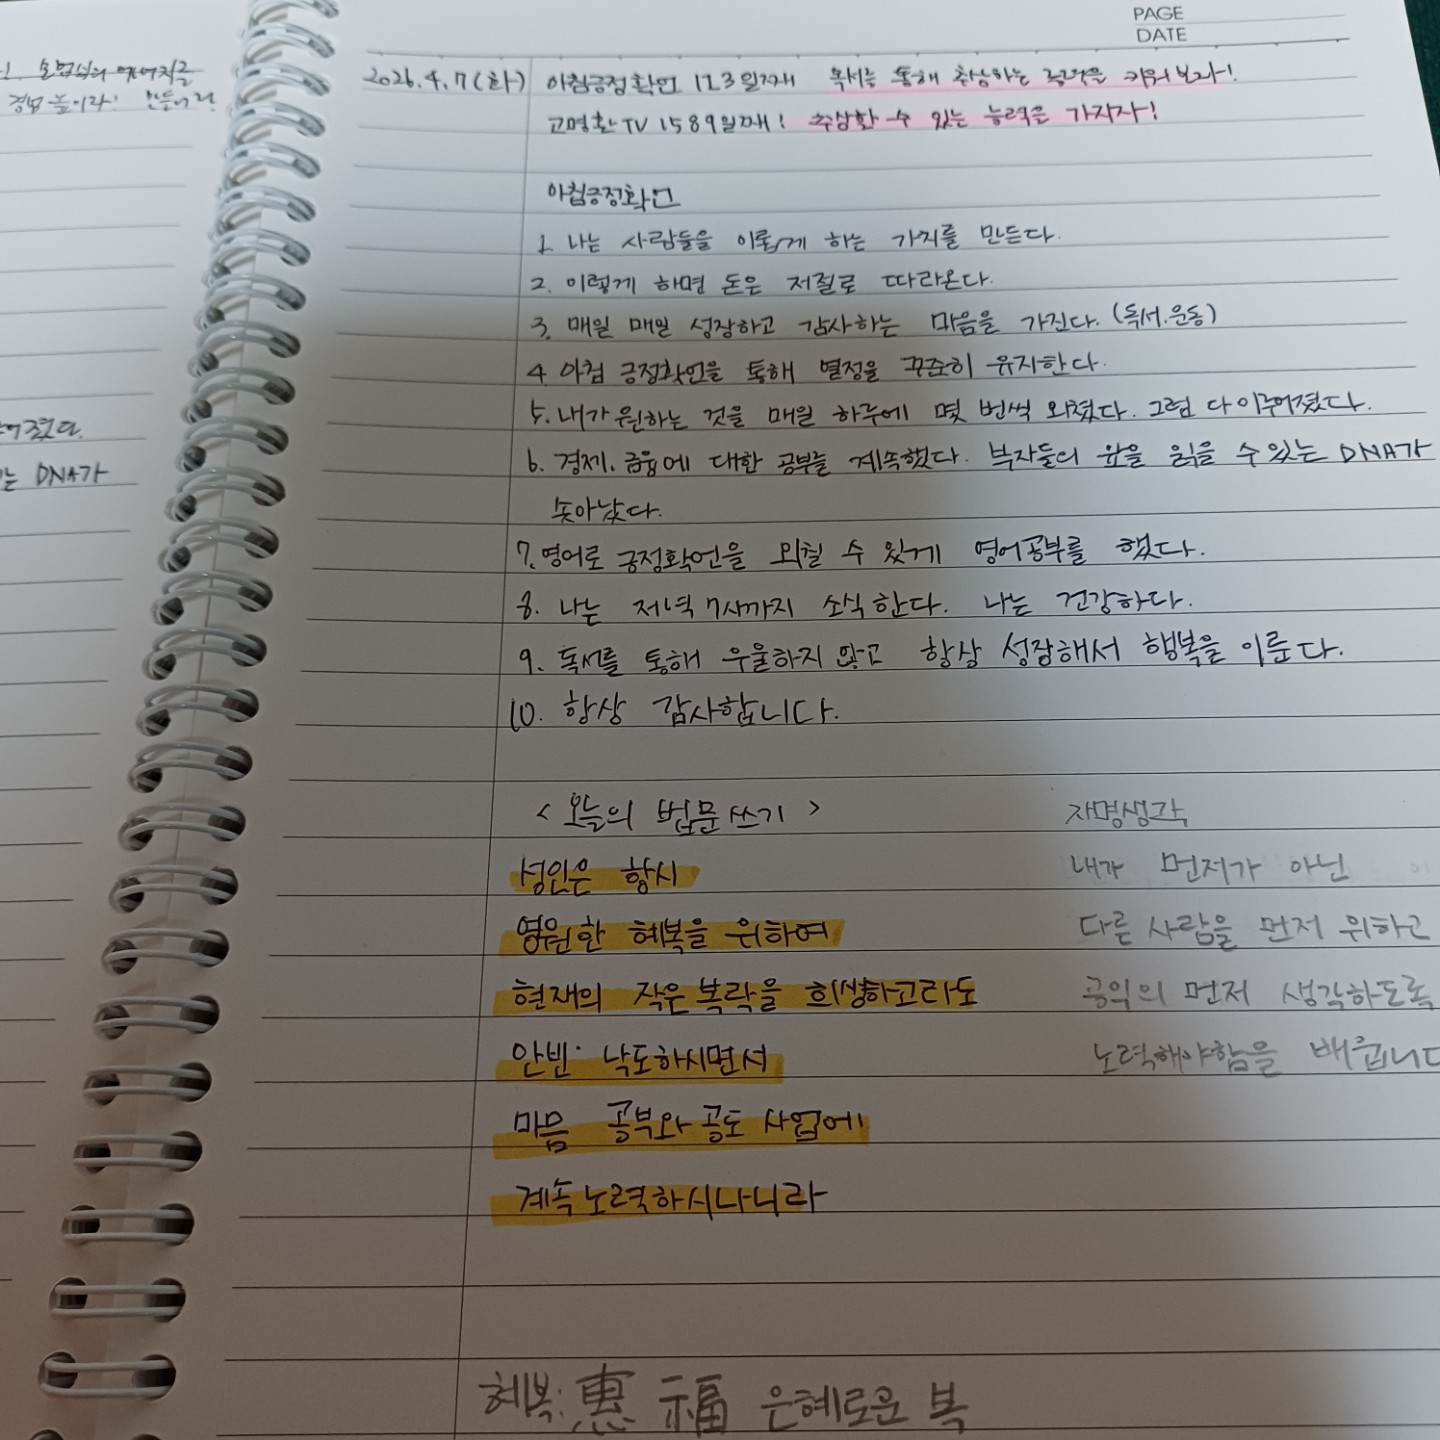 PAGE
DATE
2026.4.7(화) 아침긍정확언 1123일째 독서는 통해 추상하는 능력을 키워보자!
고명환TV 1589일째! 추상할 수 있는 능력을 가지자!
아침긍정확언
1. 나는 사람들을 이롭게 하는 가치를 만든다.
2. 이렇게 하면 돈은 저절로 따라온다.
3. 매일 매일 성장하고 감사하는 마음을 가진다. (독서.운동)
4. 아침 긍정확언을 통해 열정을 꾸준히 유지한다.
5. 내가 원하는 것을 매일 하루에 몇 번씩 외쳤다. 그럼 다 이루어졌다.
6. 경제.금융에 대한 공부를 계속했다. 부자들의 부을 읽을 수 있는 DNA가
솟아났다.
7. 영어로 긍정확언을 외칠 수 있게 영어공부를 했다.
8. 나는 저녁 7시까지 소식한다. 나는 건강하다.
9. 독서를 통해 우울하지 않고 항상 성장해서 행복을 이룬다.
10. 항상 감사합니다.
<오늘의 법문쓰기> 자명생각
성인은 항시 내가 먼저가 아닌
영원한 혜복을 위하여 다른 사람을 먼저 위하고
현재의 작은 복락을 희생하고라도 공익의 먼저 생각하도록
안빈·낙도하시면서 노력해야함을 배웁니다
마음 공부와 공도 사업에
계속 노력하시나니라
혜복: 惠福 은혜로운 복
어졌다.
는 DNA가